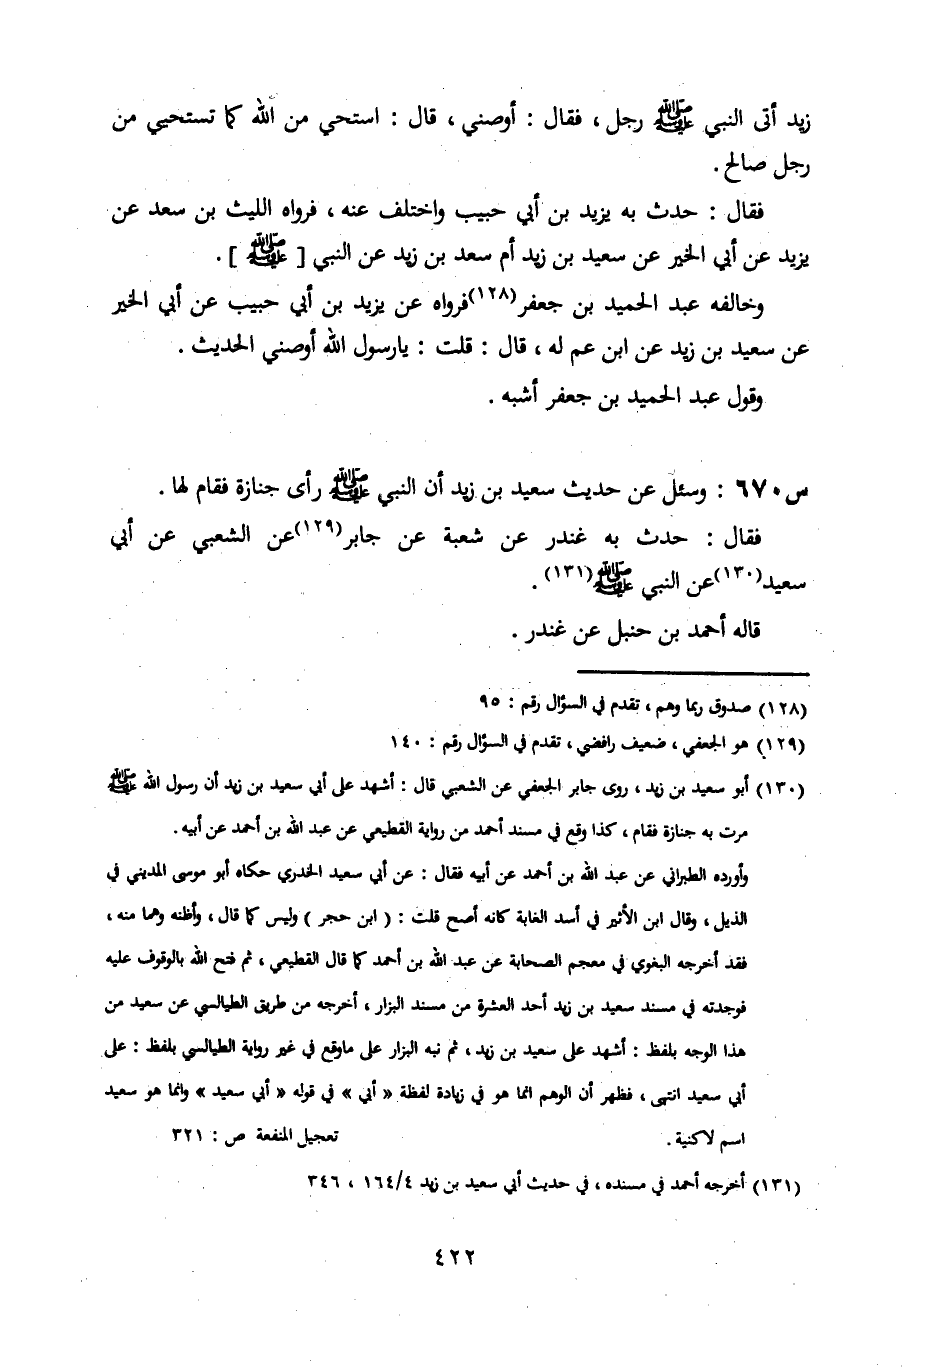 زيد أتى النبي ﷺ رجل ، فقال : أوصني ، قال : استحي من الله كما تستحيي من
رجل صالح .
فقال : حدث به يزيد بن أبي حبيب واختلف عنه ، فرواه الليث بن سعد عن
يزيد عن أبي الخير عن سعيد بن زيد أم سعد بن زيد عن النبي [ ﷺ ] .
وخالفه عبد الحميد بن جعفر(١٢٨)فرواه عن يزيد بن أبي حبيب عن أبي الخير
عن سعيد بن زيد عن ابن عم له ، قال : قلت : يارسول الله أوصني الحديث .
وقول عبد الحميد بن جعفر أشبه .
س٦٧٠ : وسئل عن حديث سعيد بن زيد أن النبي ﷺ رأى جنازة فقام لها .
فقال : حدث به غندر عن شعبة عن جابر(١٢٩)عن الشعبي عن أبي
سعيد(١٣٠)عن النبي ﷺ(١٣١) .
قاله أحمد بن حنبل عن غندر .
(١٢٨) صدوق ربما وهم ، تقدم في السؤال رقم : ٩٥
(١٢٩) هو الجعفي ، ضعيف رافضي ، تقدم في السؤال رقم : ١٤٠
(١٣٠) أبو سعيد بن زيد ، روى جابر الجعفي عن الشعبي قال : أشهد على أبي سعيد بن زيد أن رسول الله ﷺ
مرت به جنازة فقام ، كذا وقع في مسند أحمد من رواية القطيعي عن عبد الله بن أحمد عن أبيه .
وأورده الطبراني عن عبد الله بن أحمد عن أبيه فقال : عن أبي سعيد الخدري حكاه أبو موسى المديني في
الذيل ، وقال ابن الأثير في أسد الغابة كانه أصح قلت : ( ابن حجر ) وليس كما قال ، وأظنه وهما منه ،
فقد أخرجه البغوي في معجم الصحابة عن عبد الله بن أحمد كما قال القطيعي ، ثم فتح الله بالوقوف عليه
فوجدته في مسند سعيد بن زيد أحد العشرة من مسند البزار ، أخرجه من طريق الطيالسي عن سعيد من
هذا الوجه بلفظ : أشهد على سعيد بن زيد ، ثم نبه البزار على ماوقع في غير رواية الطيالسي بلفظ : على
أبي سعيد انتهى ، فظهر أن الوهم انما هو في زيادة لفظة « أبي » في قوله « أبي سعيد » وانما هو سعيد
اسم لاكنية . تعجيل المنفعة ص : ٣٢١
(١٣١) أخرجه أحمد في مسنده ، في حديث أبي سعيد بن زيد ١٦٤/٤ ، ٣٤٦
٤٢٢